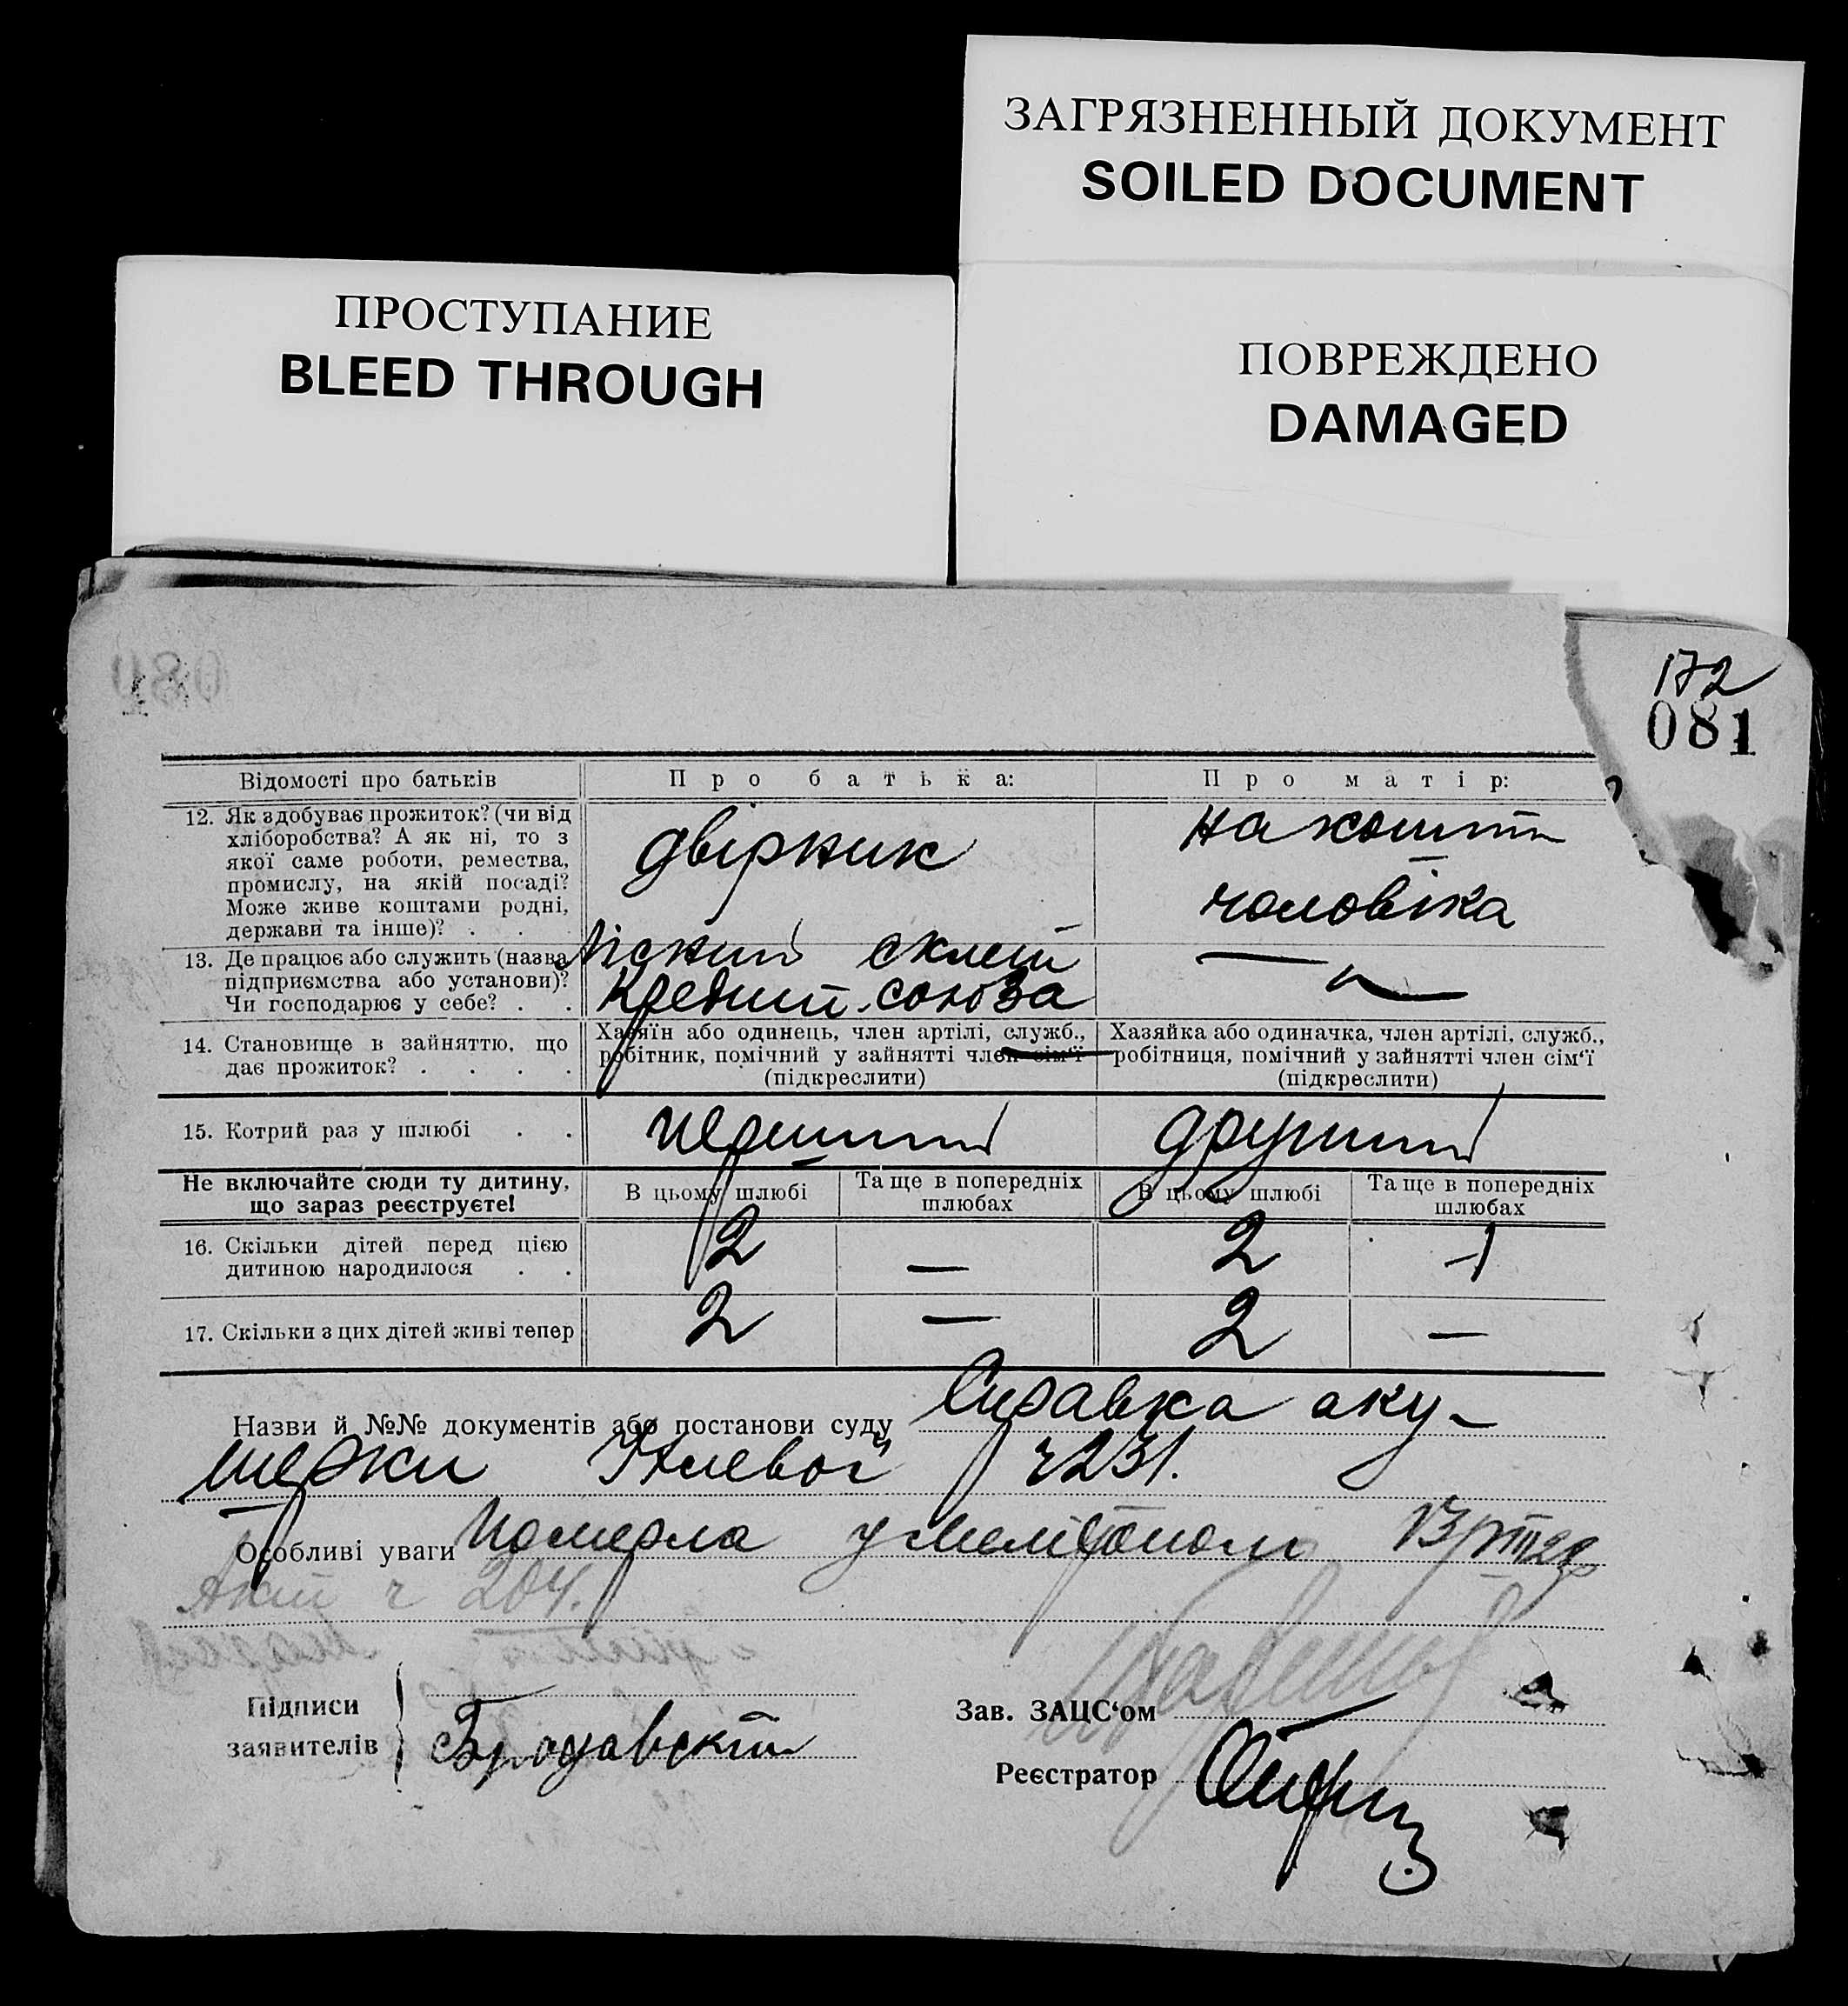 ЗАГРЯЗНЕННЫЙ ДОКУМЕНТ
SOILED DOCUMENT
ПРОСТУПАНИЕ
BLEED THROUGH
ПОВРЕЖДЕНО
DAMAGED
172
081
Відомості про батьків
Про батька:
Про матір:
12. Як здобуває прожиток? (чи від
хліборобства? А як ні, то з
якої саме роботи, ремества,
промислу, на якій посаді?
Може живе коштами родні,
держави та інше)? . .
двірник
на кошти
чоловіка
13. Де працює або служить (назва
підприємства або установи)?
Чи господарює у себе? . .
склеп
Кредит. союза
— " —
14. Становище в зайняттю, що
дає прожиток? . . . .
Хазяїн або одинець, член артілі, служб.,
робітник, помічний у зайнятті член сім'ї
(підкреслити)
Хазяйка або одиначка, член артілі, служб.,
робітниця, помічний у зайнятті член сім'ї
(підкреслити)
15. Котрий раз у шлюбі . .
перший
другий
Не включайте сюди ту дитину,
що зараз реєструєте!
В цьому шлюбі
Та ще в попередніх
шлюбах
В цьому шлюбі
Та ще в попередніх
шлюбах
16. Скільки дітей перед цією
дитиною народилося . .
2
—
2
-1
17. Скільки з цих дітей живі тепер
2
—
2
—
Назви й №№ документів або постанови суду Справка аку-
шерки ч 231.
Особливі уваги Померла у Мелітополі 13/VIII 29
Акт ч 204.
Підписи
заявителів
Зав. ЗАЦС'ом
Реєстратор